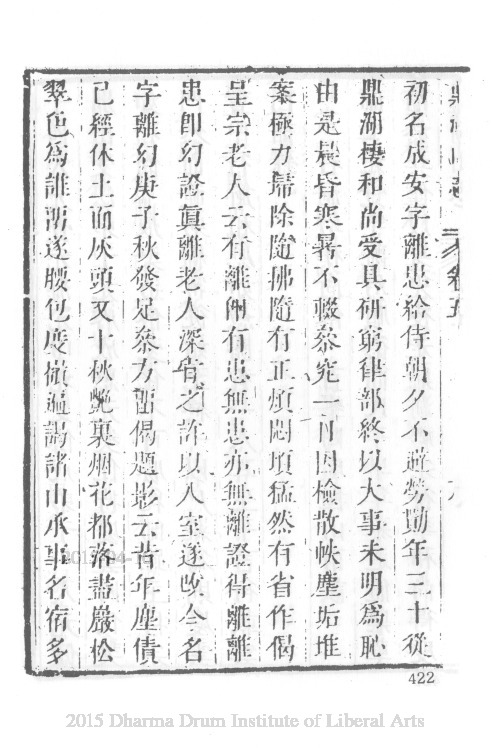 鼎湖山志 卷五 八
初名成安字離患給侍朝夕不避勞勤年三十從
鼎湖棲和尚受具研窮律部終以大事未明爲恥
由是晨昏寒暑不輟叅究一日因檢散帙塵垢堆
案極力掃除隨拂隨有正煩悶頃猛然有省作偈
呈宗老人云有離即有患無患亦無離證得離離
患即幻證眞離老人深肯之許以入室遂改今名
字離幻庚子秋發足叅方留偈題影云昔年塵債
已經休土面灰頭又十秋艷裏烟花都落盡巖松
翠色爲誰留遂腰包度嶺遍謁諸山承事名宿多
422
2015 Dharma Drum Institute of Liberal Arts